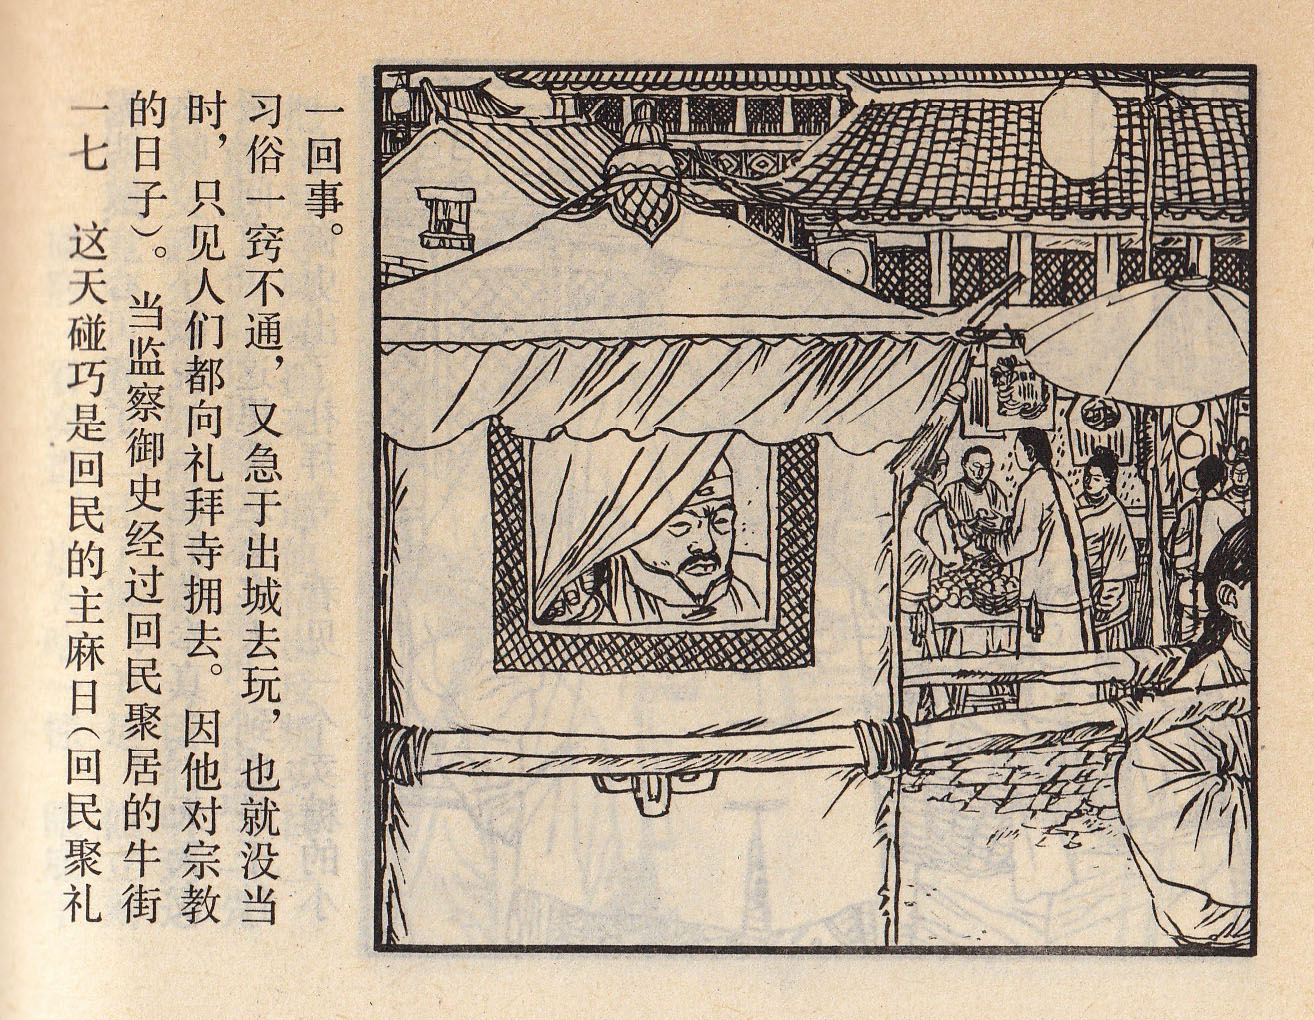 一七 这天碰巧是回民的主麻日（回民聚礼
的日子）。当监察御史经过回民聚居的牛街
时，只见人们都向礼拜寺拥去。因他对宗教
习俗一窍不通，又急于出城去玩，也就没当
一回事。